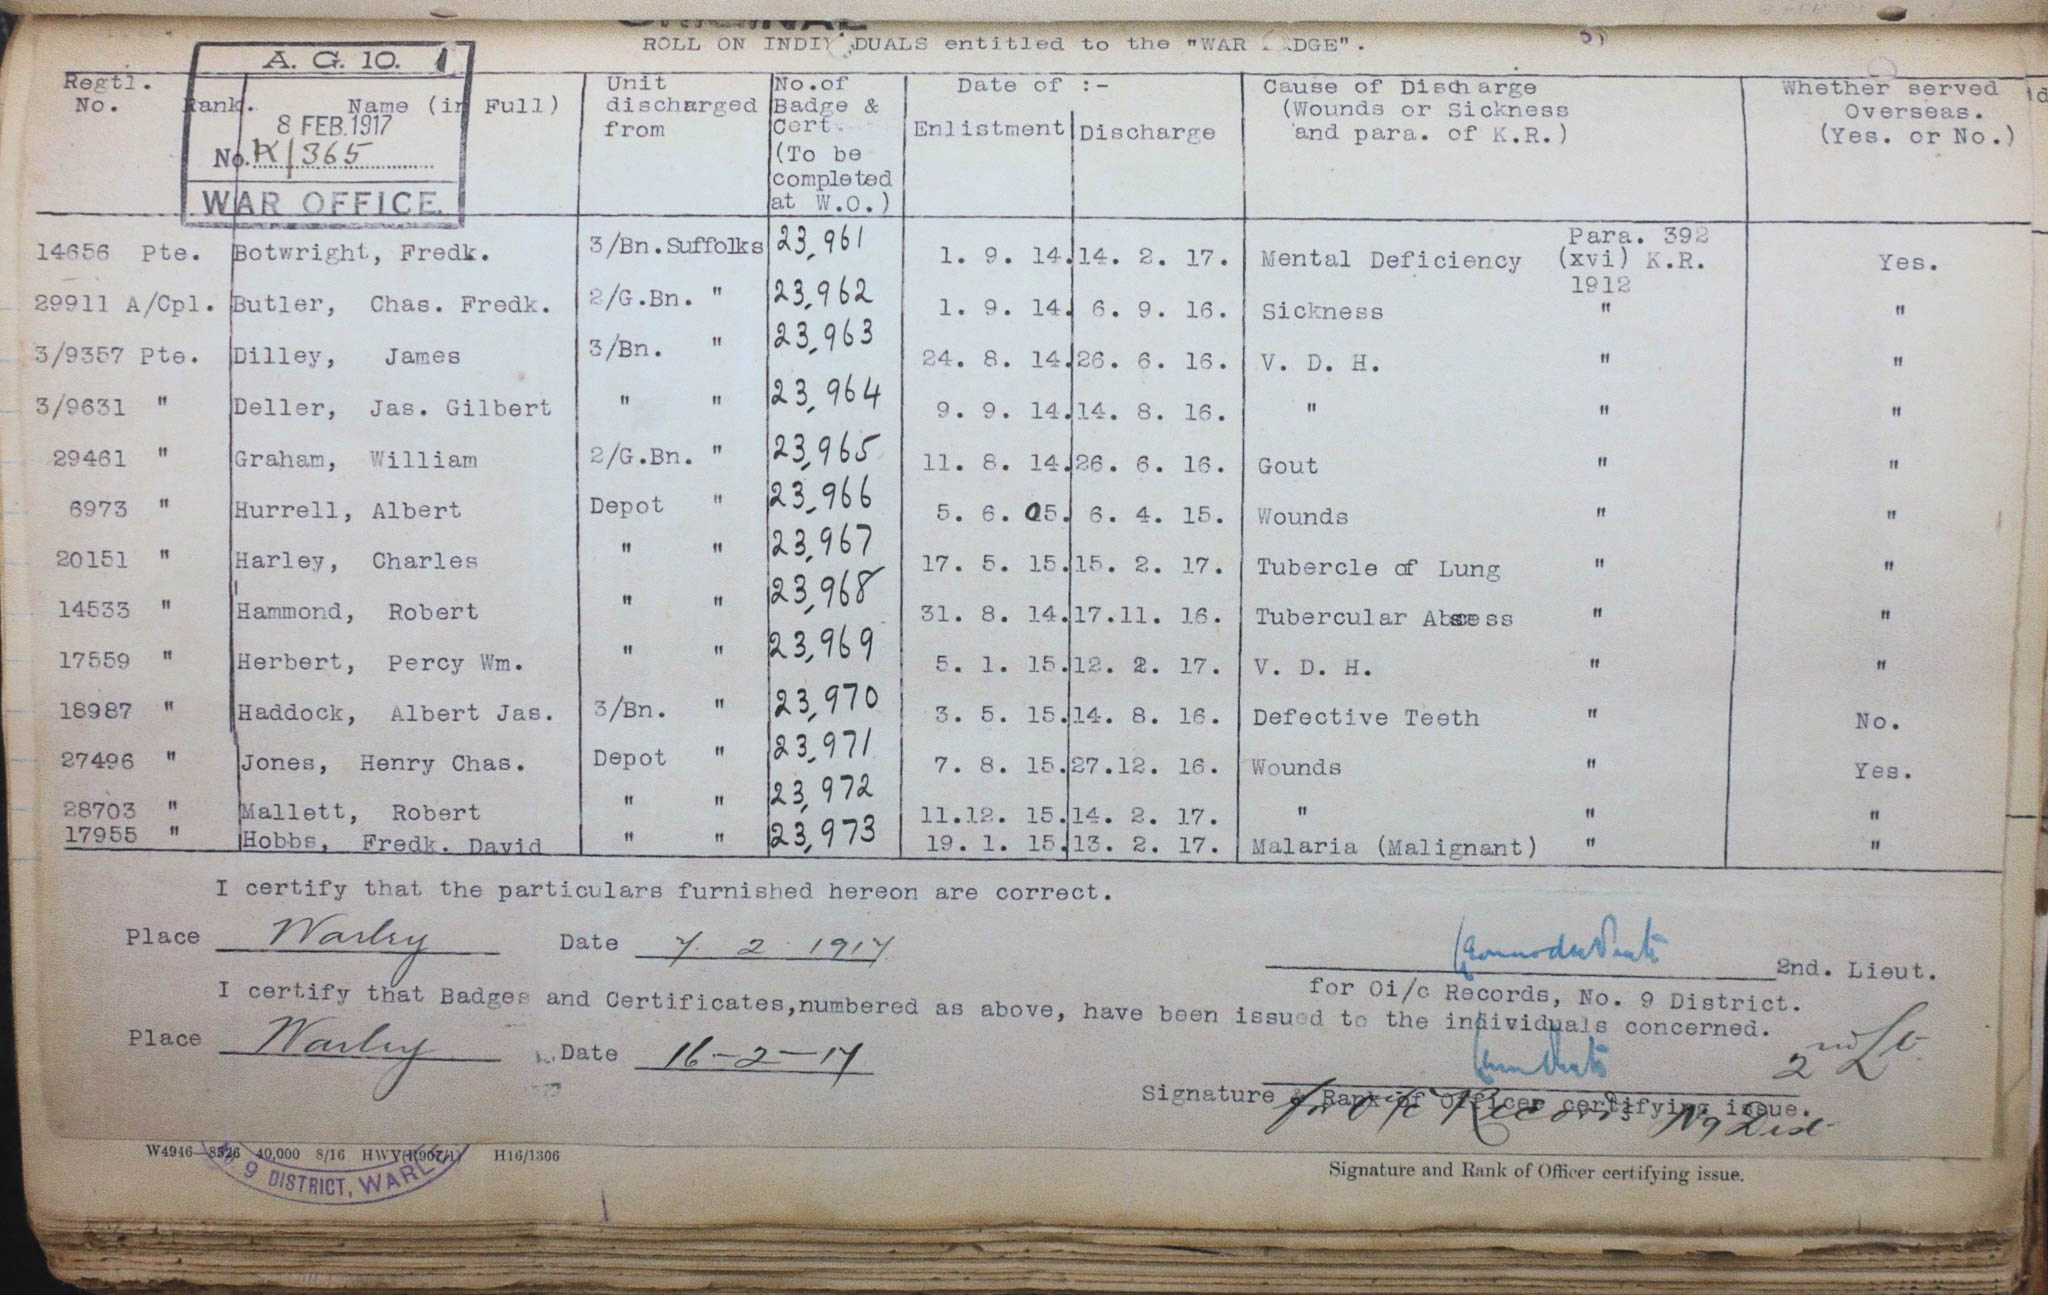 ROLL ON INDIVIDUALS entitled to the "WAR BADGE".
A. G. 10.
8 FEB. 1917
No. 365
WAR OFFICE
Regtl. No. Rank. Name (in Full) Unit discharged from No. of Badge & Cert. (To be completed at W.O.) Date of :- Enlistment Discharge Cause of Discharge (Wounds or Sickness and para. of K.R.) Whether served Overseas. (Yes. or No.)
14656 Pte. Botwright, Fredk. 3/Bn. Suffolks 23,961 1. 9. 14. 14. 2. 17. Mental Deficiency Para. 392 (xvi) K.R. 1912 Yes.
29911 A/Cpl. Butler, Chas. Fredk. 2/G.Bn. " 23,962 1. 9. 14. 6. 9. 16. Sickness " "
3/9357 Pte. Dilley, James 3/Bn. " 23,963 24. 8. 14. 26. 6. 16. V. D. H. " "
3/9631 " Deller, Jas. Gilbert " " 23,964 9. 9. 14. 14. 8. 16. " " "
29461 " Graham, William 2/G.Bn. " 23,965 11. 8. 14. 26. 6. 16. Gout " "
6973 " Hurrell, Albert Depot " 23,966 5. 6. 05. 6. 4. 15. Wounds " "
20151 " Harley, Charles " " 23,967 17. 5. 15. 15. 2. 17. Tubercle of Lung " "
14533 " Hammond, Robert " " 23,968 31. 8. 14. 17. 11. 16. Tubercular Abscess " "
17559 " Herbert, Percy Wm. " " 23,969 5. 1. 15. 12. 2. 17. V. D. H. " "
18987 " Haddock, Albert Jas. 3/Bn. " 23,970 3. 5. 15. 14. 8. 16. Defective Teeth " No.
27496 " Jones, Henry Chas. Depot " 23,971 7. 8. 15. 27. 12. 16. Wounds " Yes.
28703 " Mallett, Robert " " 23,972 11. 12. 15. 14. 2. 17. " " "
17955 " Hobbs, Fredk. David " " 23,973 19. 1. 15. 13. 2. 17. Malaria (Malignant) " "
I certify that the particulars furnished hereon are correct.
Place Warley Date 7. 2. 1917
2nd. Lieut.
for Oi/c Records, No. 9 District.
I certify that Badges and Certificates, numbered as above, have been issued to the individuals concerned.
Place Warley Date 16-2-17
2nd Lt
Signature & Rank of Officer certifying issue.
for O/c Records No 9 Dist
W4946—8526 40,000 8/16 H16/1306
9 DISTRICT, WARLEY
Signature and Rank of Officer certifying issue.